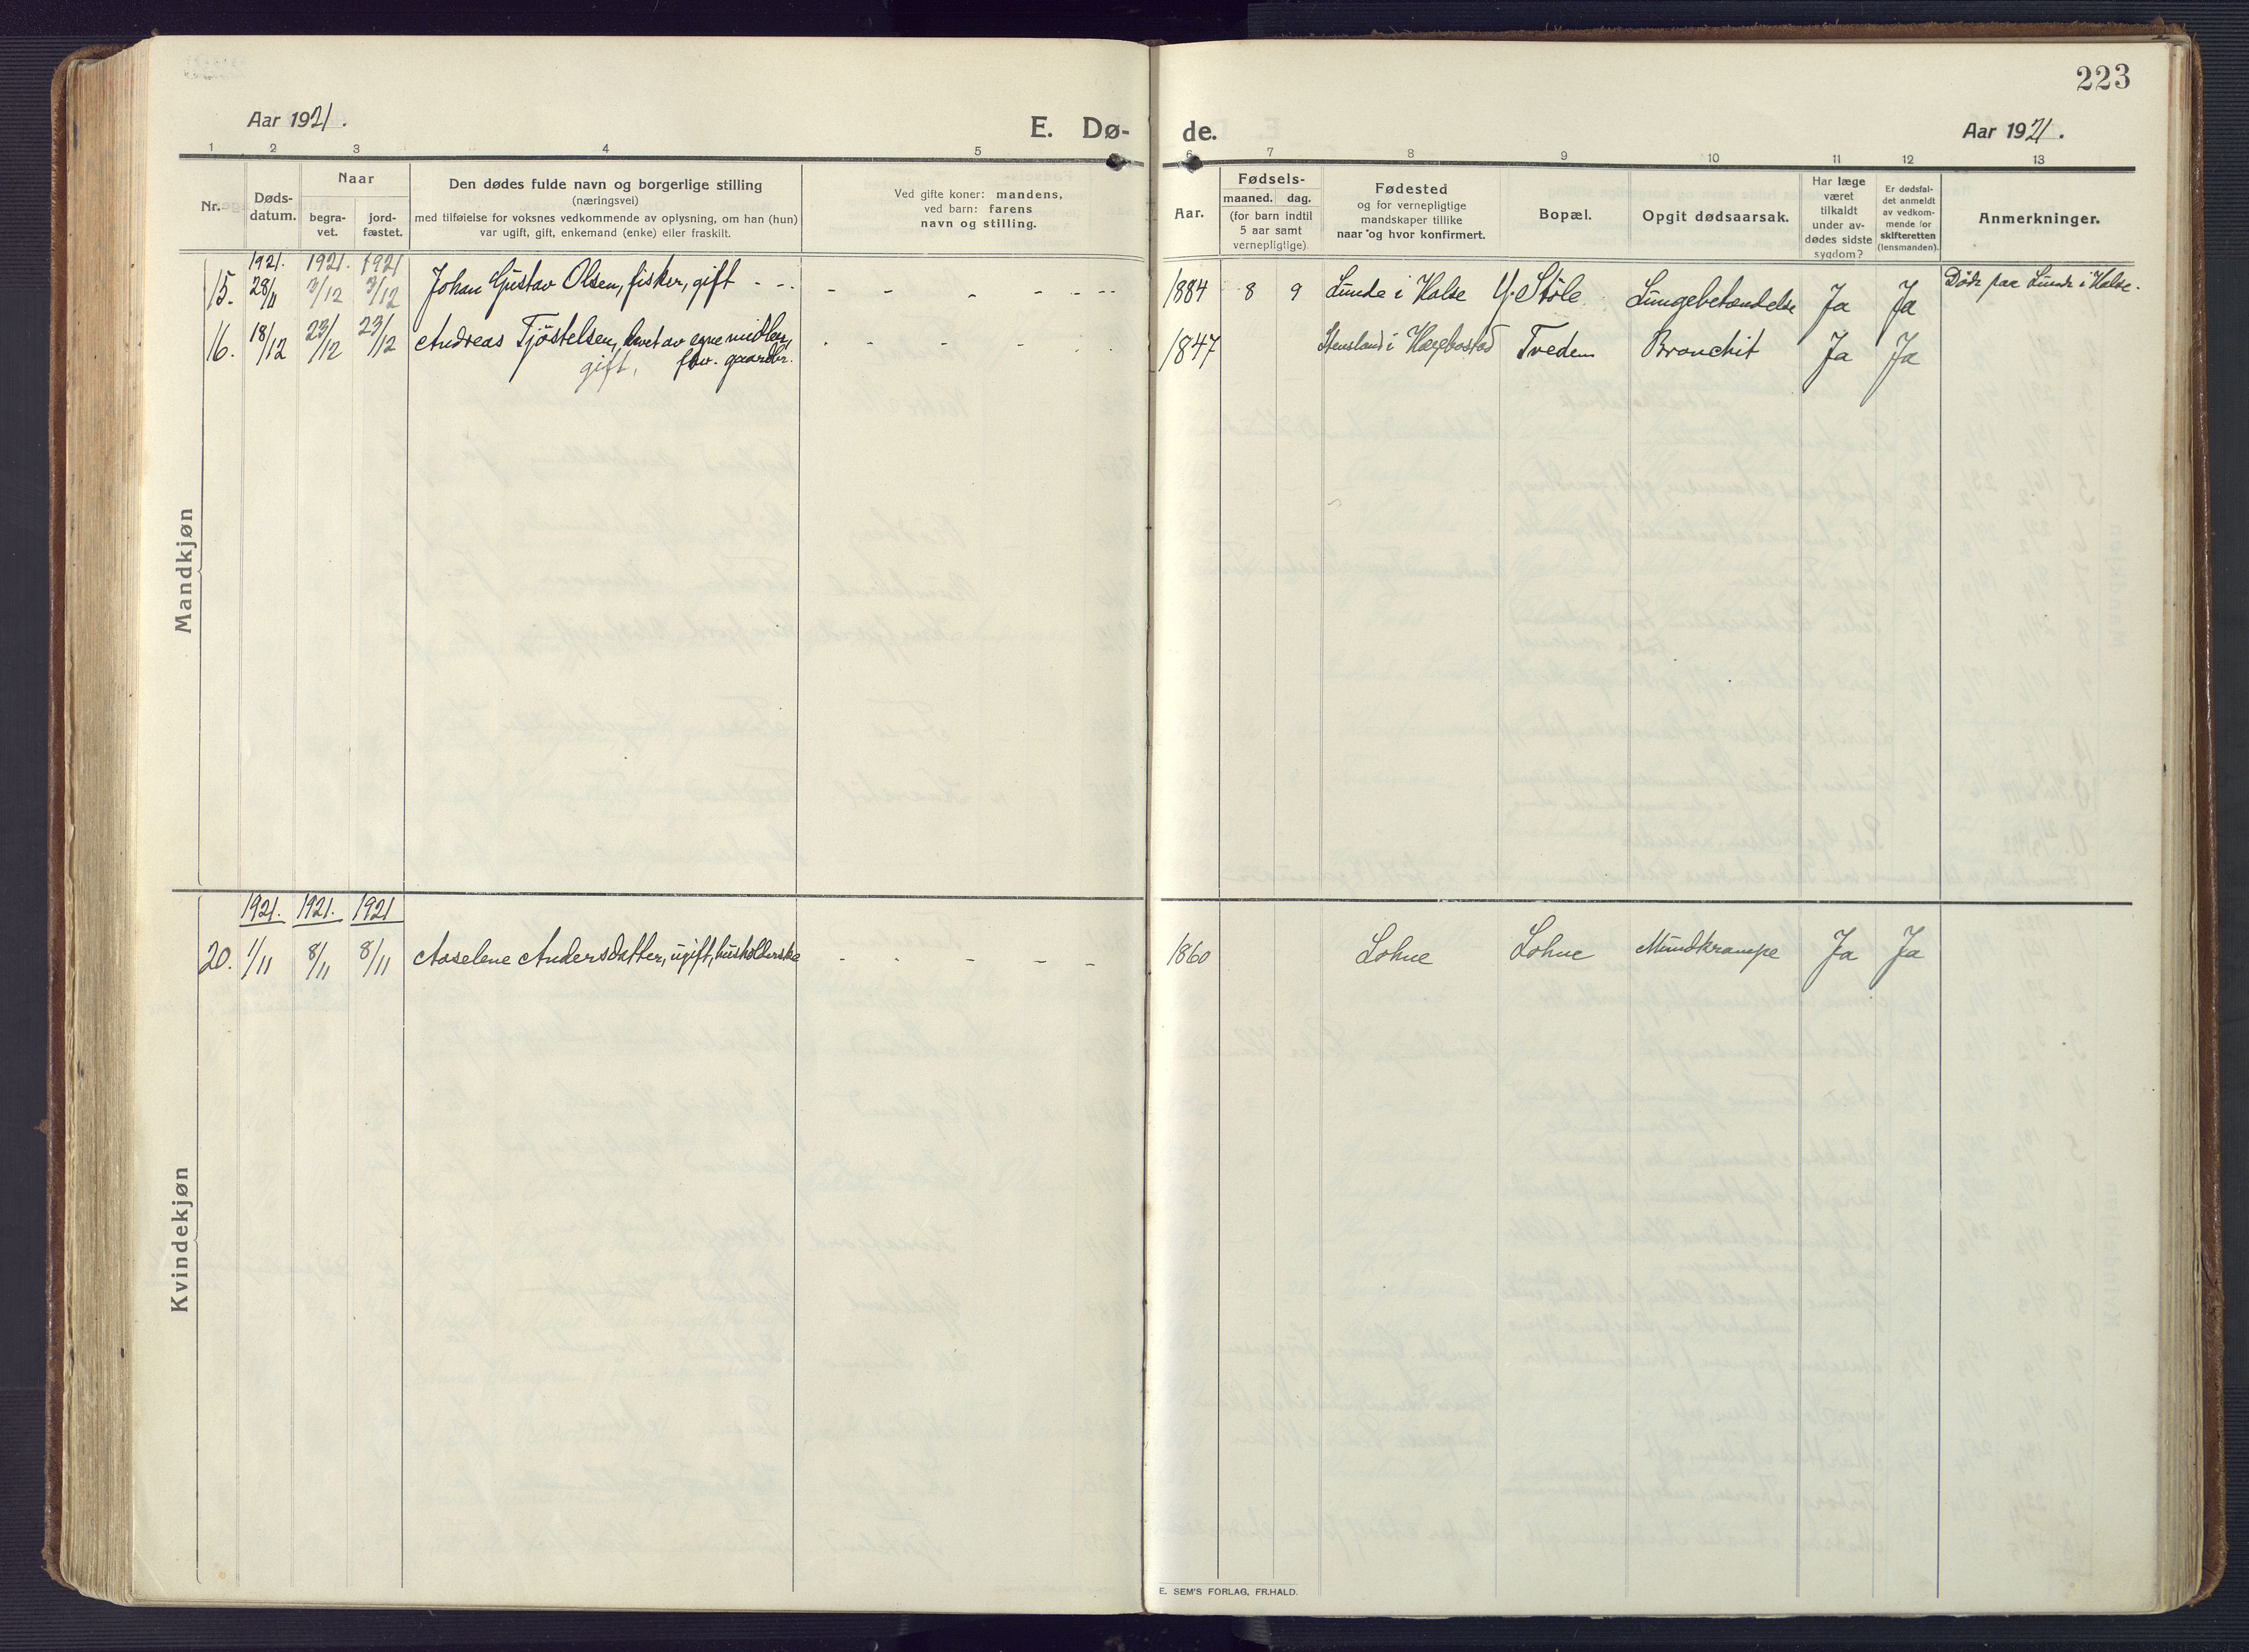 223
Aar 1921.
E. Dø-
de.
Aar 1921.
1 2 3 4 5 6 7 8 9 10 11 12 13
Nr.
Døds-
datum.
Naar
begra-
vet.
jord-
fæstet.
Den dødes fulde navn og borgerlige stilling
(næringsvei)
med tilføielse for voksnes vedkommende av oplysning, om han (hun)
var ugift, gift, enkemand (enke) eller fraskilt.
Ved gifte koner: mandens,
ved barn: farens
navn og stilling.
Aar.
Fødsels-
maaned. dag.
(for barn indtil
5 aar samt
vernepligtige).
Fødested
og for vernepligtige
mandskaper tillike
naar og hvor konfirmert.
Bopæl.
Opgit dødsaarsak.
Har læge
været
tilkaldt
under av-
dødes sidste
sygdom?
Er dødsfal-
det anmeldt
av vedkom-
mende for
skifteretten
(lensmanden).
Anmerkninger.
Mandkjøn
1921. 1921. 1921
15. 28/11 3/12 3/12 Johan Gustav Olsen, fisker, gift - - - - - - - - - 1884 8 9 Lunde i Halse Y. Støle Lungebetændelse Ja Ja Døde paa Lunde i Halse.
16. 18/12 23/12 23/12 Andreas Tjøstelsen, levet av egne midler, - - - - - 1847 Stensland i Hægebostad Tredem Bronchit Ja Ja
gift, fhv. gaardbr.
Kvindekjøn
1921. 1921. 1921
20. 1/11 8/11 8/11 Aaselene Andersdatter, ugift, husholderske - - - - - 1860 Lohne Lohne Mundkrampe Ja Ja
E. SEM'S FORLAG, FR.HALD.